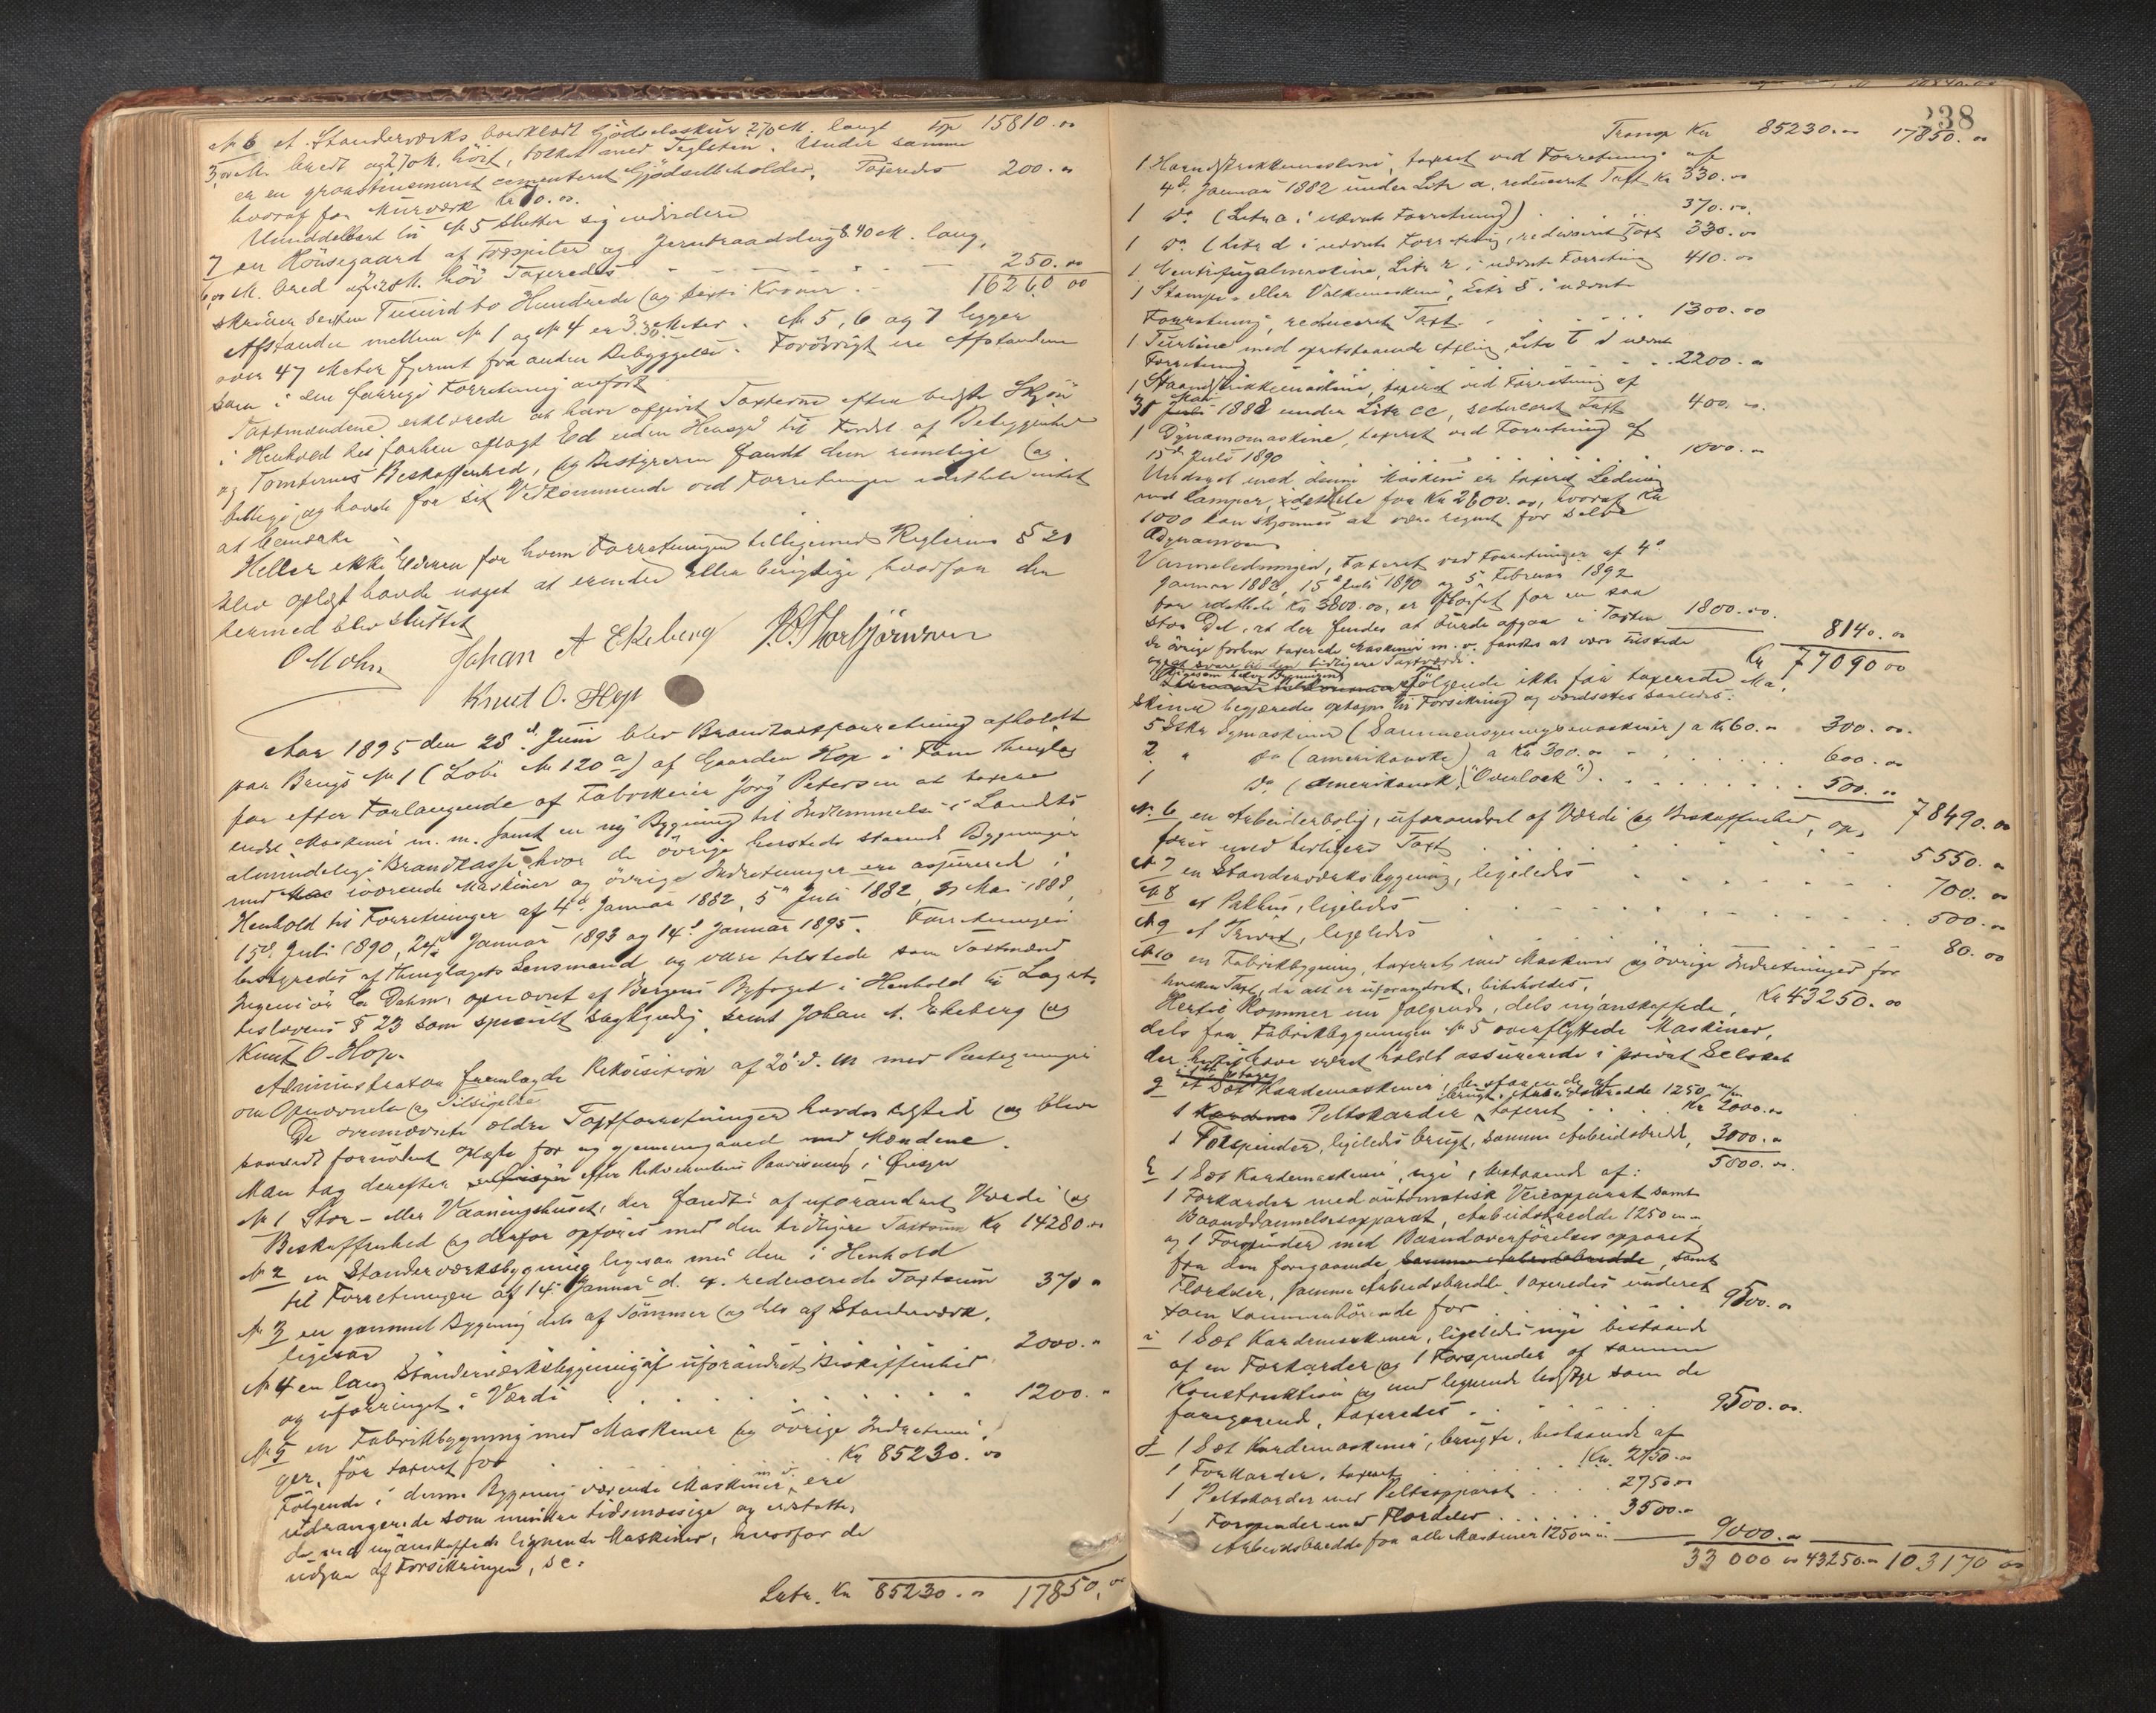 No 6 et Standerværks bordklædt Gjödselsskur 2.70 M. langt Trp 15810.00
3,00 M. bredt og 2.70 M. höit, tækket med Teglsten. Under samme
er en graastensmuret cementeret Gjödselbeholder. Taxeredes 200.00
hvoraf for Murværk Kr 70.00.
Umiddelbart til No 5 slutter sig endvidere
7 en Hönsegaard af Træspiler og Jerntraadduug 8.40 M. lang,
6,00 M. bred og 2.20 M. höi Taxeredes 250.00
16260 00
skriver sexten Tusind to Hundrede og sexti Kroner.
Afstanden mellem No 1 og No 4 er 3.30 Meter. No 5, 6 og 7 ligger
over 47 Meter fjernt fra anden Bebyggelse. Forövrigt ere Afstandene
som i den forrige Forretning anfört.
Taxtmændene erklærede at have afgivet Taxterne efter bedste Skjön
i Henhold til forhen aflagt Ed uden Hensyn til Fordel af Beliggenhed
og Tomternes Beskaffenhed, og Bestyreren fandt dem rimelige og
billige, og havde for sit Vedkommende ved Forretningen idethele intet
at bemærke
Heller ikke Eieren for hvem Forretningen tilligemed Reglernes § 21
blev oplæst havde noget at erindre eller berigtige, hvorfor den
hermed blev sluttet
O Mohn Johan A Ekeberg P. S. Thorbjörnsen
Knut O. Hop
Aar 1895 den 28d Juni blev Brandtaxtforretning afholdt
paa Brugs No 1 (Löbe No 120 a) af Gaarden Hop i Fane Thinglag
for efter Forlangende af Fabrikeier Jörg Petersen at taxere
endel Maskiner m. m. samt en ny Bygning til Indlemmelse i Landets
almindelige Brandkasse, hvor de övrige hersteds staaende Bygninger
med iværende Maskiner og övrige Indretninger ere assurerede i
Henhold til Forretninger af 4d Januar 1882, 5te Juli 1882, 31 Mai 1888,
15d Juli 1890, 24d Januar 1893 og 14d Januar 1895. Forretningen
bestyredes af Thinglagets Lensmand og vare tilstede som Taxtmænd
Ingeniör Dahm, opnævnt af Bergens Byfoged i Henhold til Lagret-
teslovens § 23 som specielt sagkyndig, samt Johan A. Ekeberg og
Knut O. Hop.
Administrator fremlagde Rekvisition af 20 d. M. med Paategninger
om Opnævnelse og Tilsigelse
De ovennævnte ældre Taxtforretninger havdes tilstede og blev
saavidt fornödent oplæste for og gjennemgaaede med Mændene.
Man tog derefter efter Rekvirentens Paavisning i Öiesyn
No 1 Stor- eller Vaaningshuset, der fandtes af uforandret Værdi og
Beskaffenhed og derfor opföres med den tidligere Taxtsum Kr 14280.00
No 2 en Standerværksbygning ligesaa med den i Henhold
til Forretningen af 14 Januar d. A. reducerede Taxtsum 370 "
No 3 en gammel Bygning dels af Tömmer og dels af Standerværk,
ligesaa 2000."
No 4 en lang Standerværksbygning af uforandret Beskaffenhed
og uforringet i Værdi 1200."
No 5 en Fabrikbygning med Maskiner og övrige Indretnin-
ger, för taxeret for Kr 85230.00
Fölgende i denne Bygning værende Maskiner m. v. ere
udrangerede som mindre tidsmæssige og erstatte-
de ved nyanskaffede lignende Maskiner, hvorfor de
udgaa af Forsikringen, sc:
Latr. Kr 85230.00 17850.00
238
Transp Kr 85230.00 17850.00
1 Haandstrikkemaskine, taxeret ved Forretning af
4d Januar 1882 under Litr a, reduceret Taxt Kr 330.00
1 do (Litr a i nævnte Forretning) 370.00.
1 do (Litr d i nævnte Forretning, reduceret Taxt 330.00
1 Centrifugalmaskine, Litr r i nævnte Forretning 410.00
1 Stampe- eller Valkemaskine, Litr s i nævnte
Forretning, reduceret Taxt 1300.00
1 Turbine med opretstaaende Axling, Litr t i nævnte
Forretning 2200.00
1 Haandstrikkemaskine, taxeret ved Forretning af
31 Mai 1888 under Litr cc, reduceret Taxt 400.00.
1 Dynamomaskine, taxeret ved Forretning af
15d Juli 1890 1000.00
Undtaget med denne Maskine er taxeret Ledning
med Lamper, idethele for Kr 2600.00, hvoraf Kr
1000 kan skjönnes at være regnet for selve
Dynamoen
Varmeledningen, taxeret ved Forretninger af 4d
Januar 1882, 15d Juli 1890 og 5 Februar 1892
for idethele Kr 3800.00, er slöifet for en saa
stor Del, at der findes at burde afgaa i Taxten 1800.00. 8140.00
De övrige forhen taxerede Maskiner m. v. fandtes at være tilstede
og at svare til den tidligere Taxtværdi. Kr 77090 00
ligesom selve Bygningen
Fölgende ikke för taxerede Ma-
skiner begjæredes optagne til Forsikring og værdsattes saaledes:
5 Stkr Symaskiner (Sammensyningsmaskiner) a Kr 60.00 300.00.
2 " do (amerikanske) a Kr 300.00 600.00
1 do (amerikansk, "Overlock") 500.00 78490.00
No 6 en Arbeiderbolig, uforandret af Værdi og Beskaffenhed, op-
föres med tidligere Taxt 5550."
No 7 en Standerværksbygning, ligeledes 700.00
No 8 et Pakhus, ligeledes 500.00
No 9 et Privet, ligeledes 80.00
No 10 en Fabrikbygning, taxeret med Maskiner og övrige Indretninger for
hvilken Taxt, da alt er uforandret, bibeholdes, Kr 43250.00
Hertil kommer nu fölgende, dels nyanskaffede,
dels fra Fabrikbygningen No 5 overflyttede Maskiner,
der hertil have været holdt assurerede i privat Selskab
i 1ste Etage
g et Sæt Kardemaskiner, bestaaende af
1 Peltskarder, brugt, Arbeidsbredde 1250 m/m taxeret Kr 2000.00
1 Forspinder, ligeledes brugt, samme Arbeidsbredde, 3000.00
5000.00.
h 1 Sæt Kardemaskiner, nye, bestaaende af:
1 Forkarder med automatisk Veieapparat samt
Baanddannelsesapparat, Arbeidsbredde 1250 m.m
og 1 Forspinder med Baandoverförelsesapparat
fra den foregaaende, samme Arbeidsbredde, samt
Flordeler, samme Arbeidsbredde. Taxeredes underet
som sammenhörende for 9500.00
i 1 Sæt Kardemaskiner, ligeledes nye bestaaende
af en Forkarder og 1 Forspinder af samme
Konstruktion og med lignende Udstyr som de
foregaaende, taxeredes 9500.00.
j 1 Sæt Kardemaskiner, brugte, bestaaende af
1 Forkarder, taxeret Kr. 2750.00
1 Peltskarder med Peltsapparat 2750 00
1 Forspinder med Flordeler 3500.00
Arbeidsbredde for alle Maskiner 1250 m.m. 9000.00
33 000 00 43250.00 103170 00